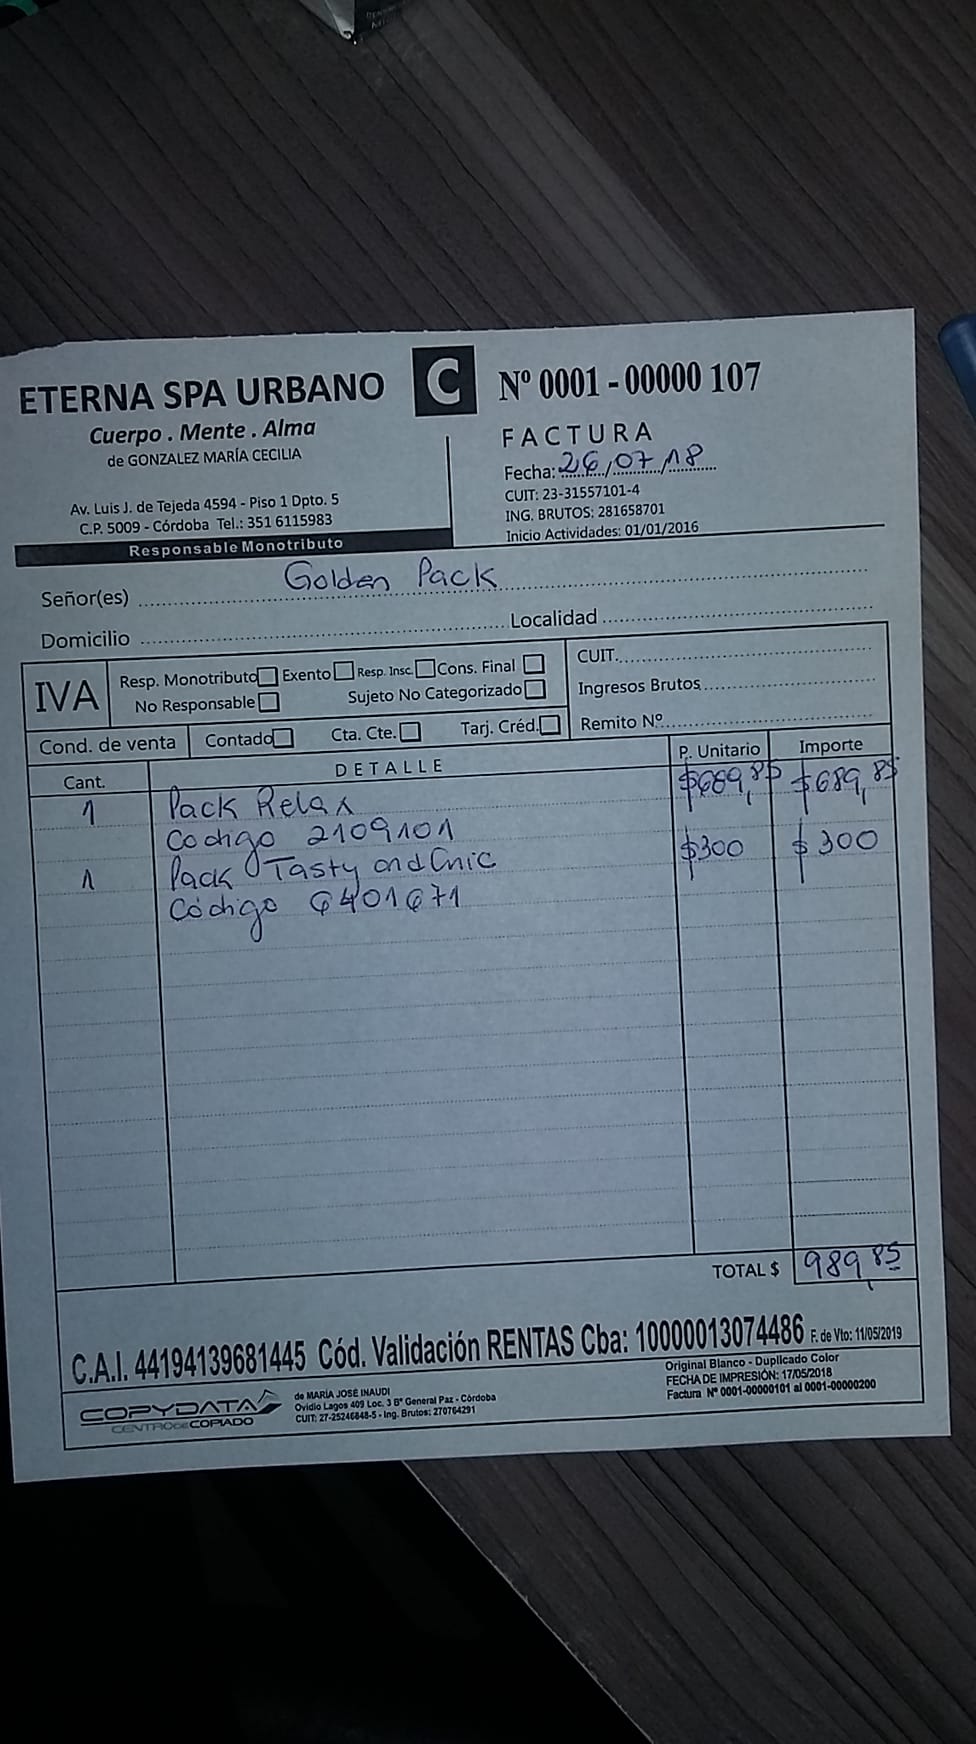 ETERNA SPA URBANO
Cuerpo . Mente . Alma
de GONZALEZ MARÍA CECILIA
Av. Luis J. de Tejeda 4594 - Piso 1 Dpto. 5
C.P. 5009 - Córdoba Tel.: 351 6115983
Responsable Monotributo
C
Nº 0001 - 00000 107
FACTURA
Fecha: 26/07/18
CUIT: 23-31557101-4
ING. BRUTOS: 281658701
Inicio Actividades: 01/01/2016
Señor(es) Golden Pack
Domicilio Localidad
IVA
Resp. Monotributo Exento Resp. Insc. Cons. Final
No Responsable Sujeto No Categorizado
CUIT.
Ingresos Brutos
Remito Nº
Cond. de venta Contado Cta. Cte. Tarj. Créd.
Cant. DETALLE P. Unitario Importe
1 Pack Relax $689,85 $689,85
Codigo 2109101
1 Pack Tasty and Chic $300 $300
Código 6401671
TOTAL $ 989,85
C.A.I. 44194139681445 Cód. Validación RENTAS Cba: 10000013074486 F. de Vto: 11/05/2019
COPYDATA
CENTRO DE COPIADO
de MARÍA JOSÉ INAUDI
Ovidio Lagos 409 Loc. 3 Bº General Paz - Córdoba
CUIT: 27-25246848-5 - Ing. Brutos: 270764291
Original Blanco - Duplicado Color
FECHA DE IMPRESIÓN: 17/05/2018
Factura Nº 0001-00000101 al 0001-00000200